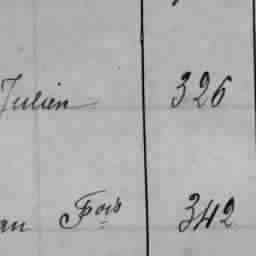 Julien 326
an Fois 342